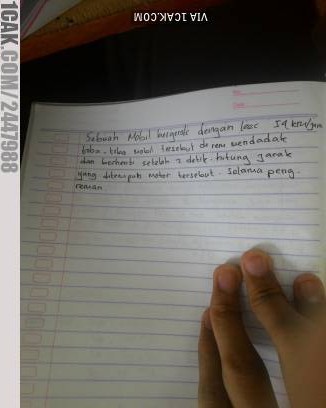 1CAK.COM/2447988
VIA 1CAK.COM
Sebuah Mobil bergerak dengan laju 54 km/jam
tiba-tiba mobil tersebut di rem mendadak
dan berhenti setelah 2 detik. hitung jarak
yang ditempuh tersebut. Selama peng-
reman